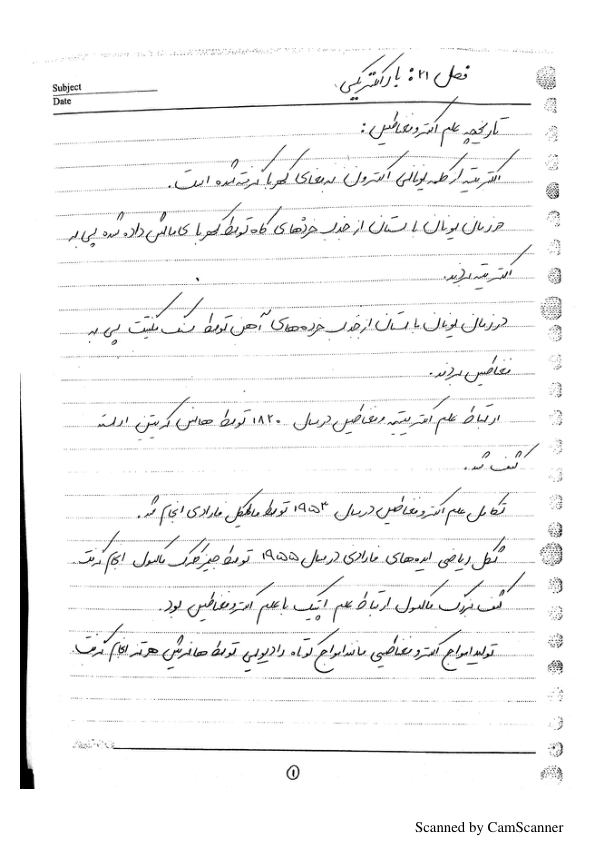 فصل ۲۱: بار الکتریکی
Subject
Date
تاریخچه علم الکترومغناطیس:
الکتریسیته از کلمه یونانی الکترون به معنای کهربا گرفته شده است.
در زمان یونان باستان از جذب خرده‌های کاه توسط کهربای مالش داده شده پی به
الکتریسیته بردند.
در زمان یونان باستان از جذب خرده‌های آهن توسط سنگ مگنتیت پی به
مغناطیس بردند.
ارتباط علم الکتریسیته و مغناطیس در سال ۱۸۲۰ توسط هانس کریستین اورستد
کشف شد.
تکامل علم الکترومغناطیس در سال ۱۹۵۳ توسط مایکل فارادی انجام شد.
شکل ریاضی ایده‌های فارادی در سال ۱۹۵۵ توسط جیمز کلرک ماکسول انجام گرفت.
کشف بزرگ ماکسول ارتباط علم اپتیک با علم الکترومغناطیس بود.
تولید امواج الکترومغناطیسی مانند امواج کوتاه رادیویی توسط هانریش هرتز انجام گرفت.
۱
Scanned by CamScanner